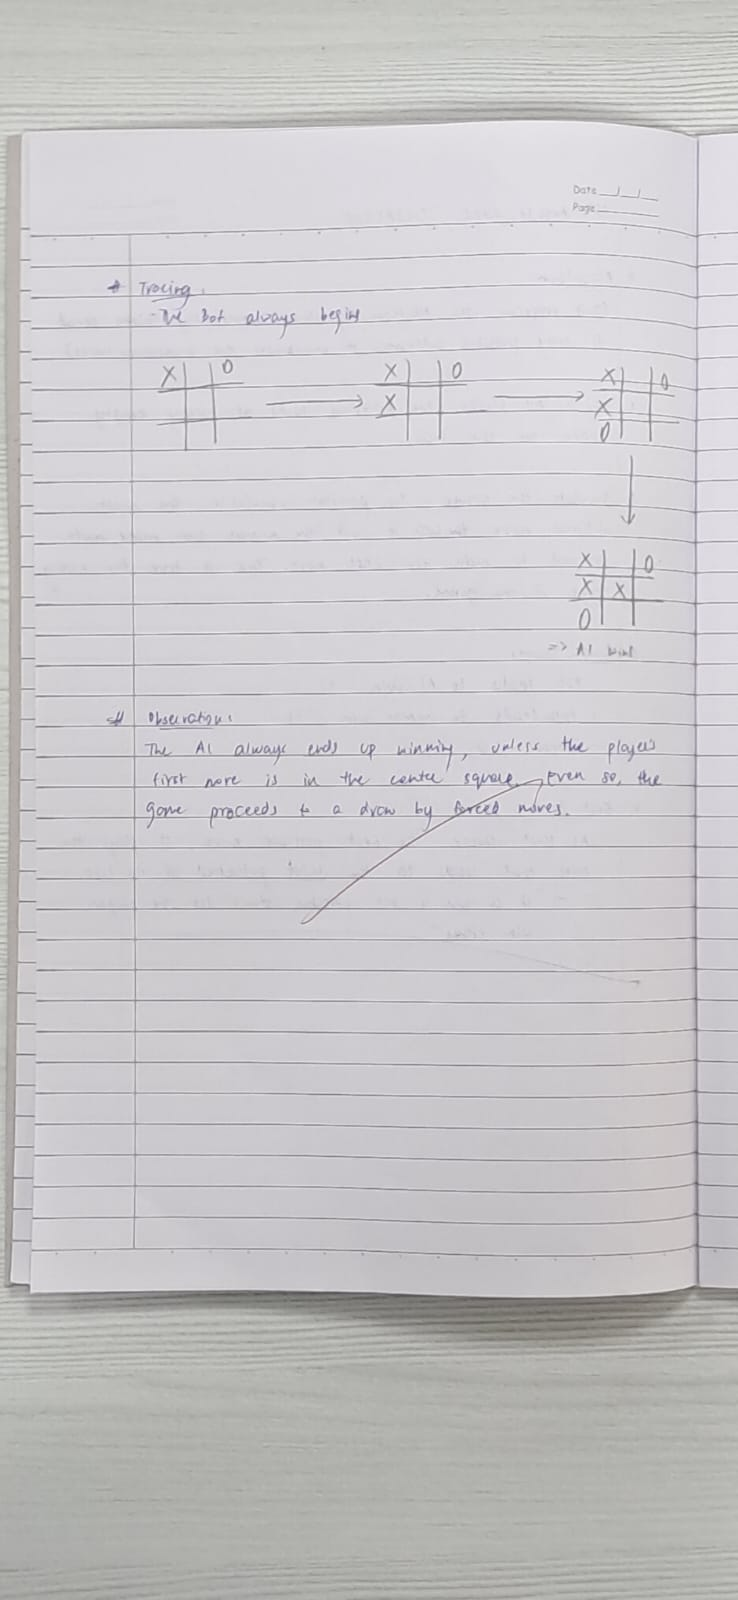 Date __/__/__
Page ______
* Tracing:
- The Bot always begins
X O
X O
X
X O
X
O
X O
X X
O
=> AI wins
# Observation:
The AI always ends up winning, unless the player's
first move is in the center square. Even so, the
game proceeds to a draw by forced moves.